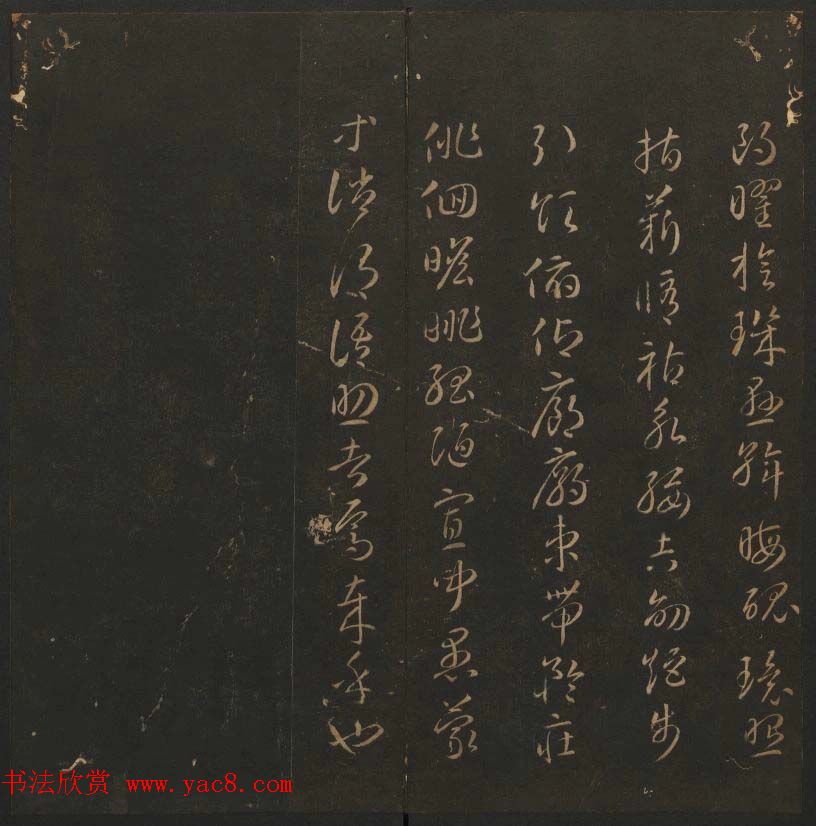 朗曜旋璣懸斡晦魄環照
指薪脩祜永綏吉劭矩步
引領俯仰廊廟束帶矜莊
徘徊瞻眺孤陋寡聞愚蒙
等誚謂語助者焉哉乎也
书法欣赏 www.yac8.com